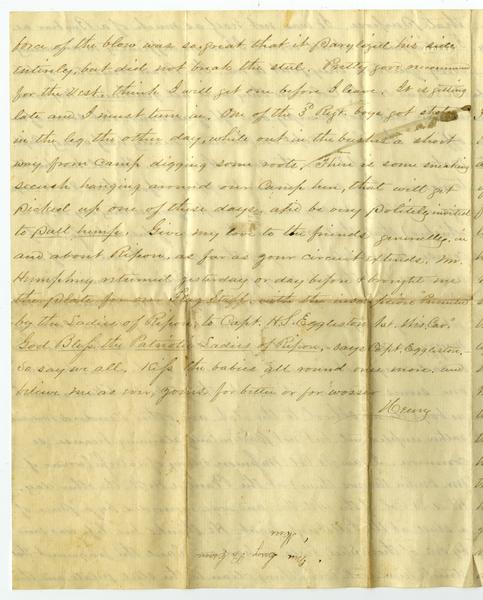 force of the blow was so great that it paralized his side
entirely, but did not break the steel. Pretty good recommend
for the Vest. think I will get one before I leave. It is getting
late and I must turn in. One of the 3d Regt. boys got shot
in the leg the other day, while out in the bushes a short
way from camp digging some roots. There is some sneaking
secesh hanging around our Camp here, that will get
picked up one of these days, and be very politely invited
to pull hemp. Give my love to the friends generally, in
and about Ripon, as far as your circuit extends. Mr.
Humphrey returned yesterday or day before & brought me
the plate for our Flag Staff, with the inscription "Presented
by the Ladies of Ripon, to Capt. H.S. Eggleston 1st Wis. Cav."
God Bless the Patriotic Ladies of Ripon,- says Capt. Eggleston,-
So say we all. Kiss the babies all round once more and
believe me as ever, yours for better or for wosser
Henry